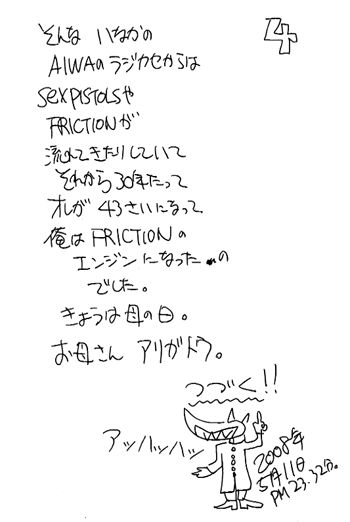 4
そんな いなかの
AIWAのラジカセからは
SEXPISTOLSや
FRICTIONが
流れてきたりしていて
それから30年たって
オレが 43さいになって
俺は FRICTIONの
エンジンになったの
でした。
きょうは母の日。
お母さん アリガトウ。
つづく!!
アッハッハッ
2008年
5月11日
PM23.32分。